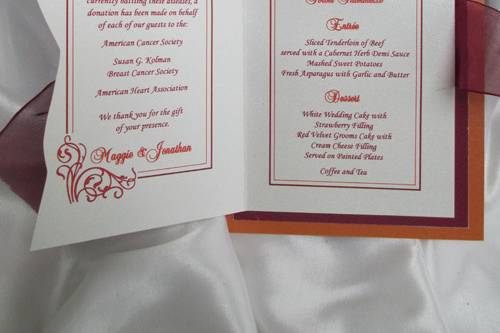 currently battling these diseases, a
donation has been made on behalf
of each of our guests to the:
American Cancer Society
Susan G. Kolman
Breast Cancer Society
American Heart Association
We thank you for the gift
of your presence.
Maggie & Jonathan
Entrée
Sliced Tenderloin of Beef
served with a Cabernet Herb Demi Sauce
Mashed Sweet Potatoes
Fresh Asparagus with Garlic and Butter
Dessert
White Wedding Cake with
Strawberry Filling
Red Velvet Grooms Cake with
Cream Cheese Filling
Served on Painted Plates
Coffee and Tea